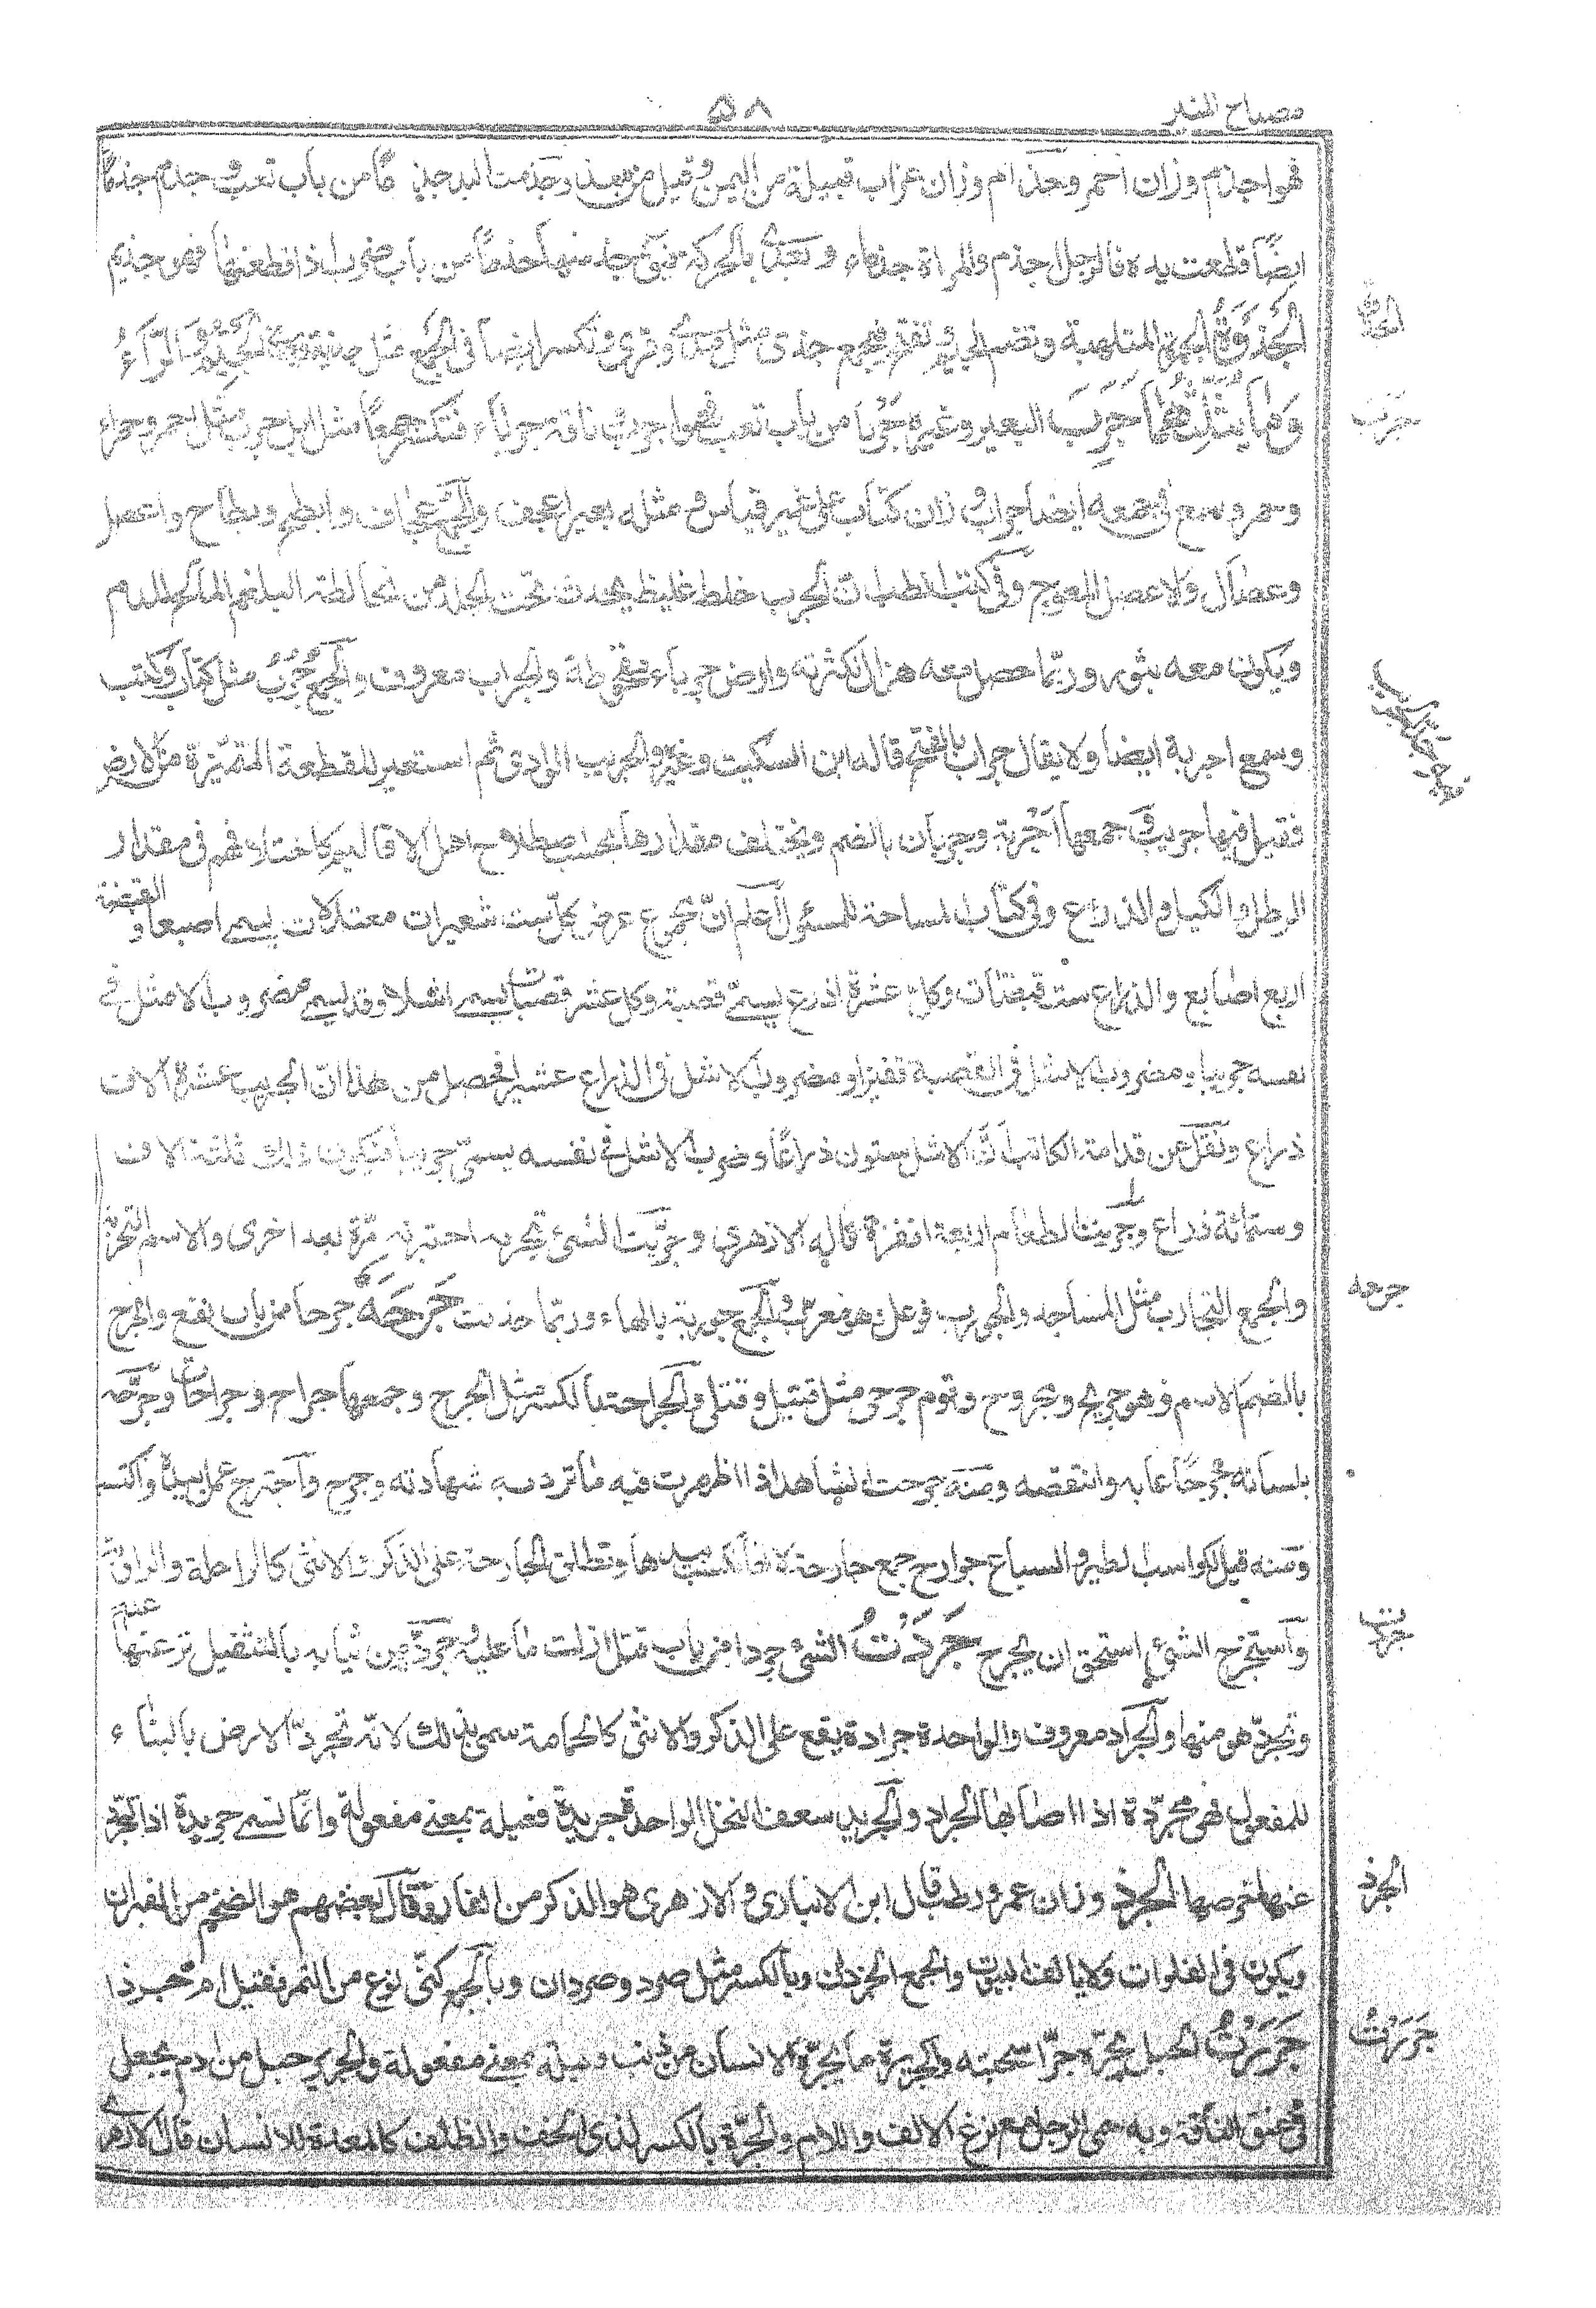 مصباح المنير
٥٨
فهو اجذم وزان احمر وجذام وزان غراب قبيلة من اليمن وقيل من معد وجذمت اليد جذما من باب تعب وجذم جذما
ايضاً قطعت يده فالرجل اجذم والمراة جذماء و تعدى بالحركة فيق جذمتها جذماً من باب ضرب اذا قطعتها فهو جذيم
الجَذْوَةُ الجمرة الملتهبة وتضم الجيم وتفتح فيجمع جذى مثل مدى وقرى وتكسر ايضاً فى الجمع مثل جزية وجزى الجيم والراء
وما يثلثهما جَرِبَ البعير وغيره جَرَباً من باب تعب فهو اجرب وناقة جرباء وقد سمع مثل ابل جرب مثل احمر وحمراء
وحمر وسمع فى جمعه ايضا جراب وزان كتاب على غير قياس ومثله بعير اعجف والجمع عجاف وابطح وبطاح واعصل
وعصال والاعصل المعوج وفى كتب الطب ان الجرب خلط غليظ يحدث تحت الجلد من مخالطة البلغم المالح للدم
ويكون معه بثور وربما حصل معه هزال لكثرته وارض جرباء مقحوطة والجراب معروف والجمع جُرُب مثل كتاب وكتب
وسمع اجربة ايضا ولا يقال جراب بالفتح قاله ابن السكيت وغيره والجريب الوادى ثم استعير للقطعة المتميزة من الارض
فقيل فيها جريب وجمعها اَجْرِبة وجربان بالضم ويختلف مقدارها بحسب اصطلاح اهل الاقاليم كاختلافهم فى مقدار
الرطل والكيل والذراع وفى كتاب المساحة للسموأل اعلم انّ مجموع عرض كل ست شعيرات معتدلات يسمى اصبعا و القبضة
اربع اصابع والذراع ست قبضات وكل عشرة اذرع يسمى قصبة وكل عشر قصبات يسمى اشلا وقد يسمى مضروب الاشل فى
نفسه جريبا ومضروب الاشل فى القصبة قفيزا ومضروب الاشل فى الذراع عشيرا فحصل من هذا انّ الجريب عشرة آلاف
ذراع ونقل عن قدامة الكاتب اَنّ الاشل ستون ذراعًا وضرب الاشل فى نفسه يسمى جريبا فيكون ذلك ثلثة الاف
وستمائة ذراع وجريب الطعام اربعة اقفزة قاله الازهرى وجرّبت الشئ تجربه اختبرته مرّة بعد اخرى والاسم التجربة
والجمع التجارب مثل المساجد والجورب فوعل وهو معرب والجمع جوربة بالهاء وربما حذفت جَرَحَهُ جرحا من باب نفع والجرح
بالضم الاسم وهو جريح ومجروح وقوم جرحى مثل قتيل وقتلى والجراحة بالكسر مثل الجرح وجمعها جراح وجراحات وجَرَحه
بلسانه جرحاً عابه وانتقصه ومنه جرحت الشاهد اذا اظهرت فيه ما ترد به شهادته وجرح واجترح عمل بيده واكتسب
ومنه قيل لكواسب الطير والسباع جوارح جمع جارحة لانها تكتسب بيدها وتطلق الجارحة على الذكر والانثى كالراحلة والراوية
واستجرح الشئ استحق ان يجرح جَرَدْتُ الشئ جردا من باب قتل ازلت ما عليه وجرّدته من ثيابه بالتثقيل نزعتها عنه
وتجرّد هو منها والجراد معروف والواحدة جرادة يقع على الذكر والانثى كالحمامة سمى بذلك لانه تجرد الارض بالبناء
للمفعول فهى مجرّدة اذا اصابها الجراد والجريد سعف النخل الواحدة جريدة فعيلة بمعنى مفعولة وانما تسمى جريدة اذا تجرد
عنها خوصها الجُرَذ وزان عمر ورطب قال ابن الانبارى والازهرى هو الذكر من الفار وقال بعضهم هو الضخم من الفيران
ويكون فى الفلوات ولا يالف البيوت والجمع الجرذان وبالكسر مثل صرد وصردان وبالجمع كنى نوع من التمر فقيل ام جرذان
جَرَرْتُ الحبل ونحوه جرّا سحبته والجريرة ما يجره الانسان من ذنب فعيلة بمعنى مفعولة والجرير حبل من ادم يجعل
فى عنق الناقة وبه سمى الرجل مع نزع الالف واللام والجرّة بالكسر لذى الخف والظلف كالمعدة للانسان قال الازهرى
جرب
جرحه
جردت
الجرذ
جررت